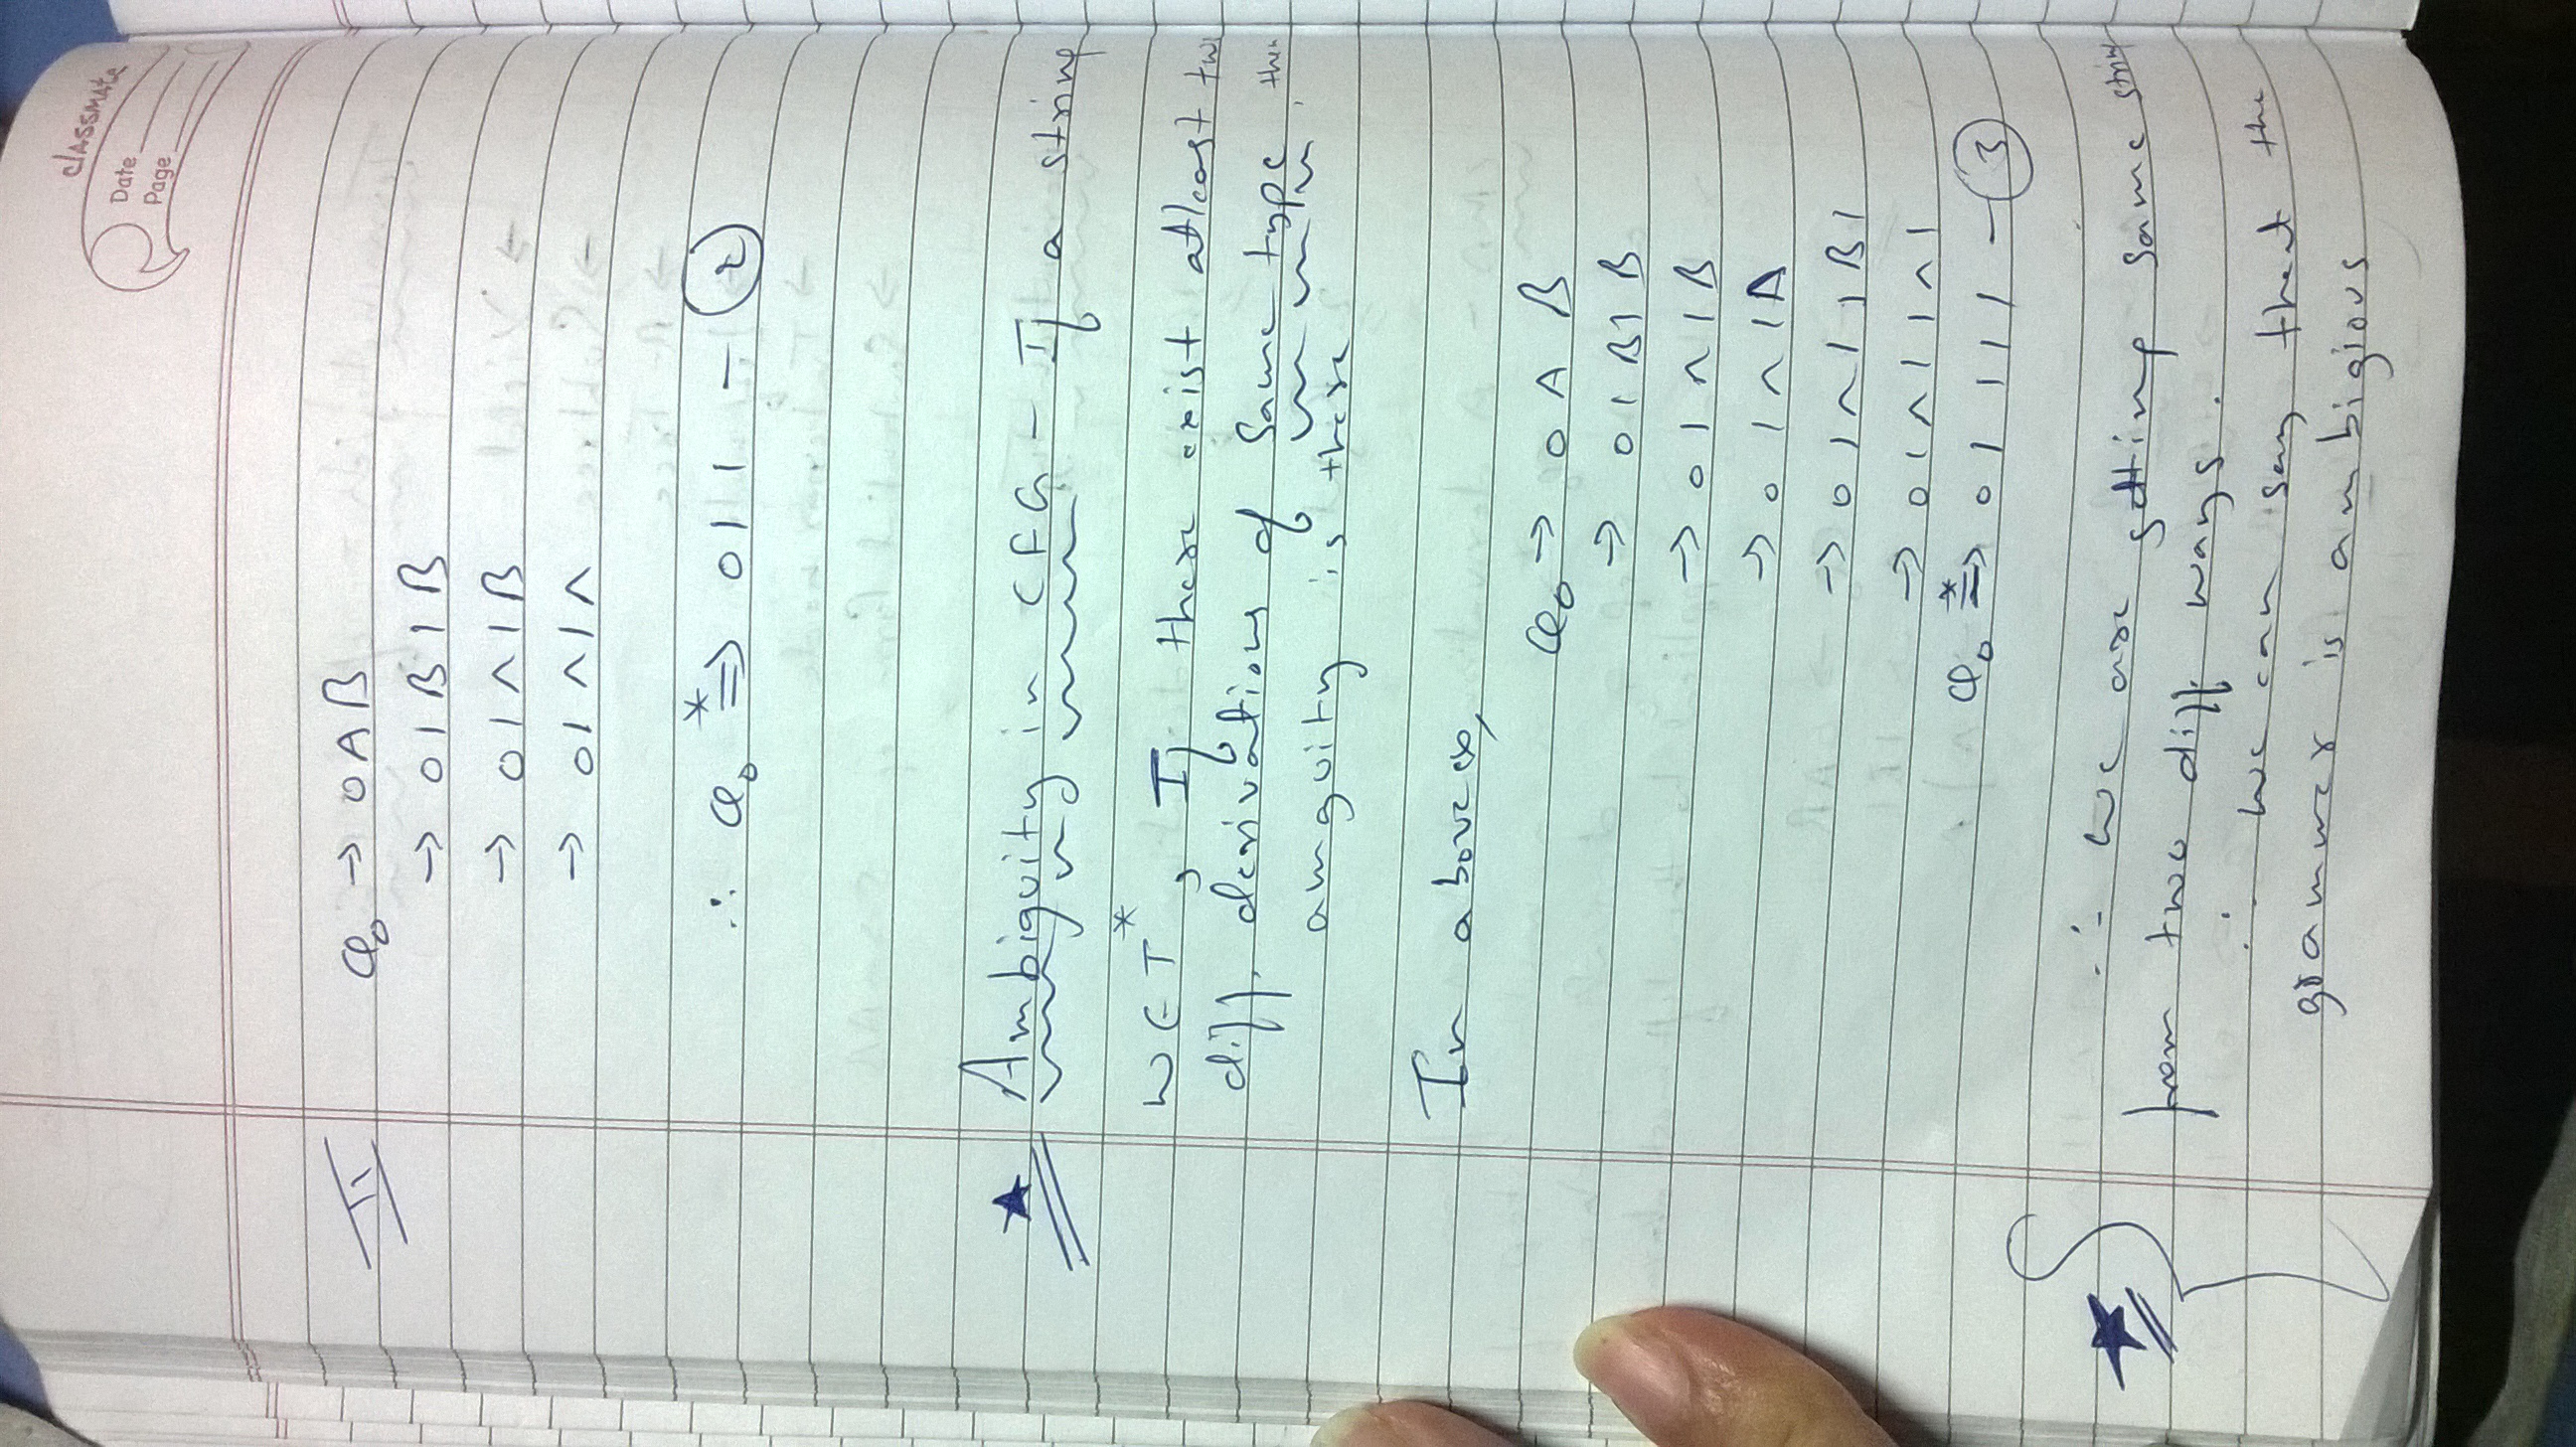 classmate
Date
Page
II
Q₀ → 0AB
→ 01B1B
→ 01∧1B
→ 01∧1∧
∴ Q₀ *⇒ 011 — ②
★ Ambiguity in CFG - If a string
W ∈ T*, If there exist atleast two
diff. derivations of same type, then
amguity is there
In above ex,
Q₀ → 0 A B
→ 01B1B
→ 01∧1B
→ 01∧1A
→ 01∧11B1
→ 01∧11∧1
Q₀ *⇒ 01111 — ③
★ ∴ We are getting same string
from two diff ways.
∴ We can say that the
grammer is ambigious